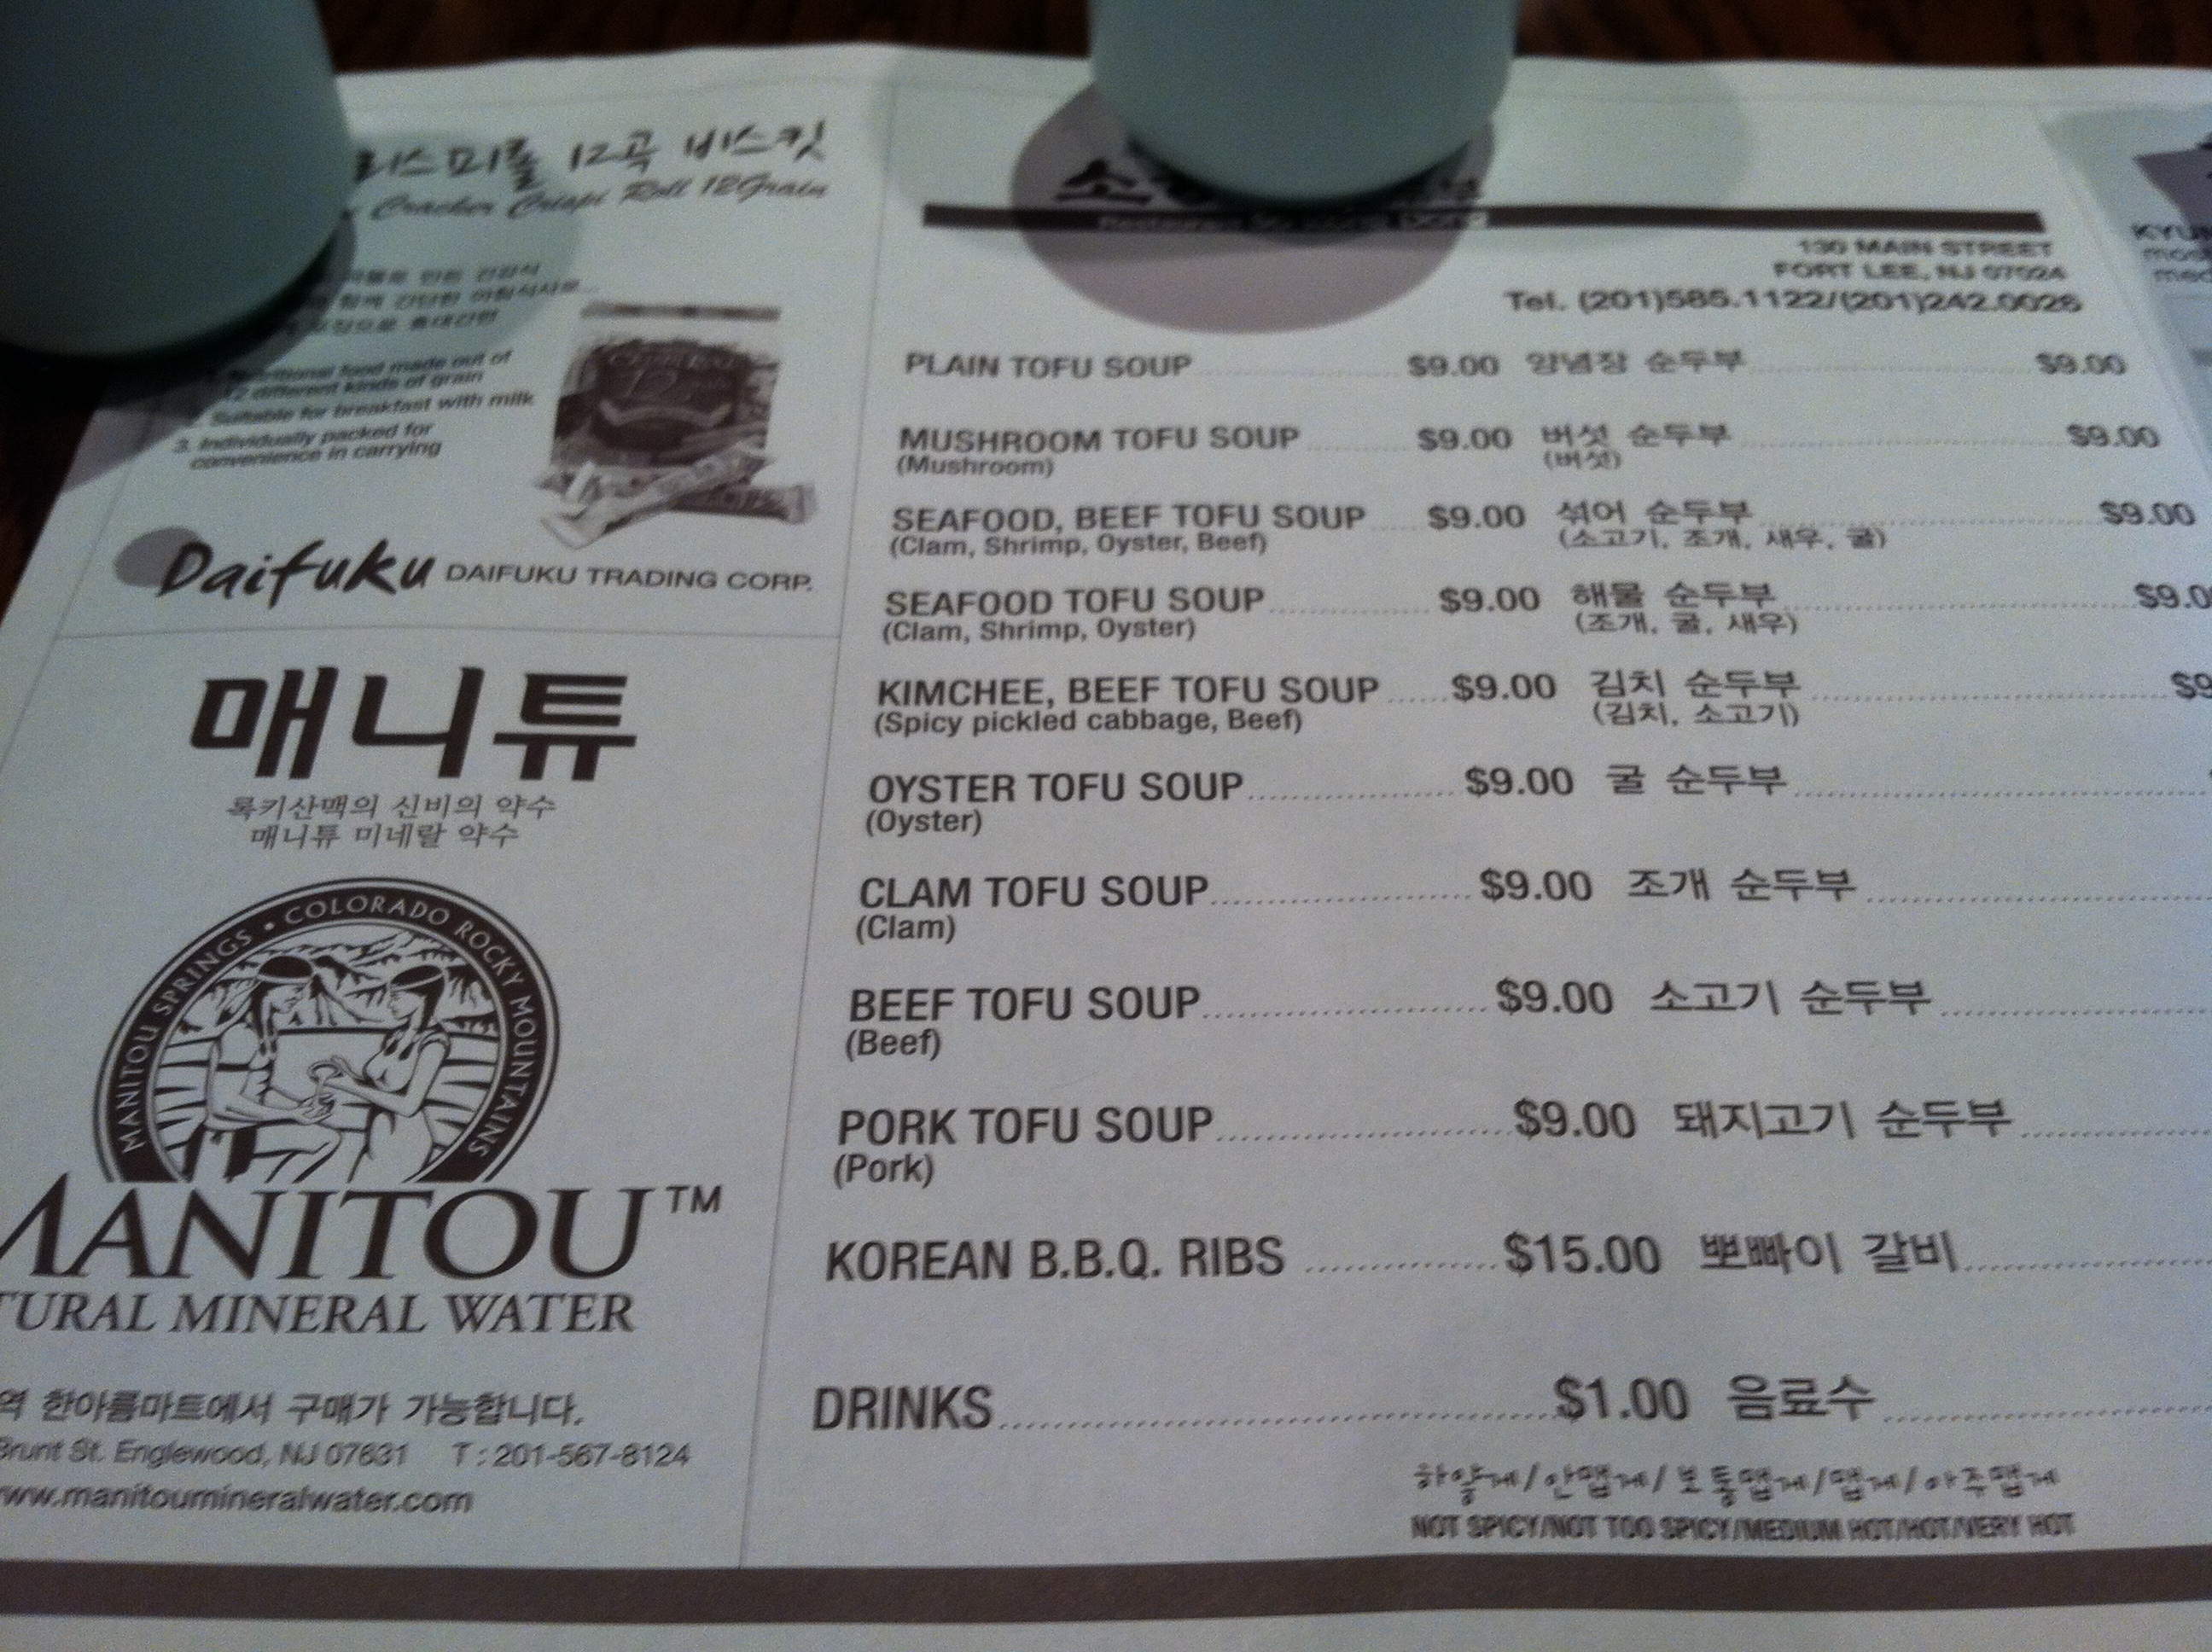 리스피롤 12곡 비스킷
Cracker Crispi Roll 12Grain
만든 건강식
함께 간단한 아침식사로...
휴대간편
food made out of
12 different kinds of grain
Suitable for breakfast with milk
3. Individually packed for
convenience in carrying
Daifuku DAIFUKU TRADING CORP.
매니튜
록키산맥의 신비의 약수
매니튜 미네랄 약수
MANITOU SPRINGS • COLORADO ROCKY MOUNTAINS
MANITOU™
TURAL MINERAL WATER
역 한아름마트에서 구매가 가능합니다.
Brunt St. Englewood, NJ 07631 T : 201-567-8124
www.manitoumineralwater.com
130 MAIN STREET
FORT LEE, NJ 07024
Tel. (201)585.1122/(201)242.0026
PLAIN TOFU SOUP $9.00 양념장 순두부 $9.00
MUSHROOM TOFU SOUP $9.00 버섯 순두부 $9.00
(Mushroom) (버섯)
SEAFOOD, BEEF TOFU SOUP $9.00 섞어 순두부 $9.00
(Clam, Shrimp, Oyster, Beef) (소고기, 조개, 새우, 굴)
SEAFOOD TOFU SOUP $9.00 해물 순두부 $9.0
(Clam, Shrimp, Oyster) (조개, 굴, 새우)
KIMCHEE, BEEF TOFU SOUP $9.00 김치 순두부 $9
(Spicy pickled cabbage, Beef) (김치, 소고기)
OYSTER TOFU SOUP $9.00 굴 순두부
(Oyster)
CLAM TOFU SOUP $9.00 조개 순두부
(Clam)
BEEF TOFU SOUP $9.00 소고기 순두부
(Beef)
PORK TOFU SOUP $9.00 돼지고기 순두부
(Pork)
KOREAN B.B.Q. RIBS $15.00 뽀빠이 갈비
DRINKS $1.00 음료수
하얗게/안맵게/보통맵게/맵게/아주맵게
NOT SPICY/NOT TOO SPICY/MEDIUM HOT/HOT/VERY HOT